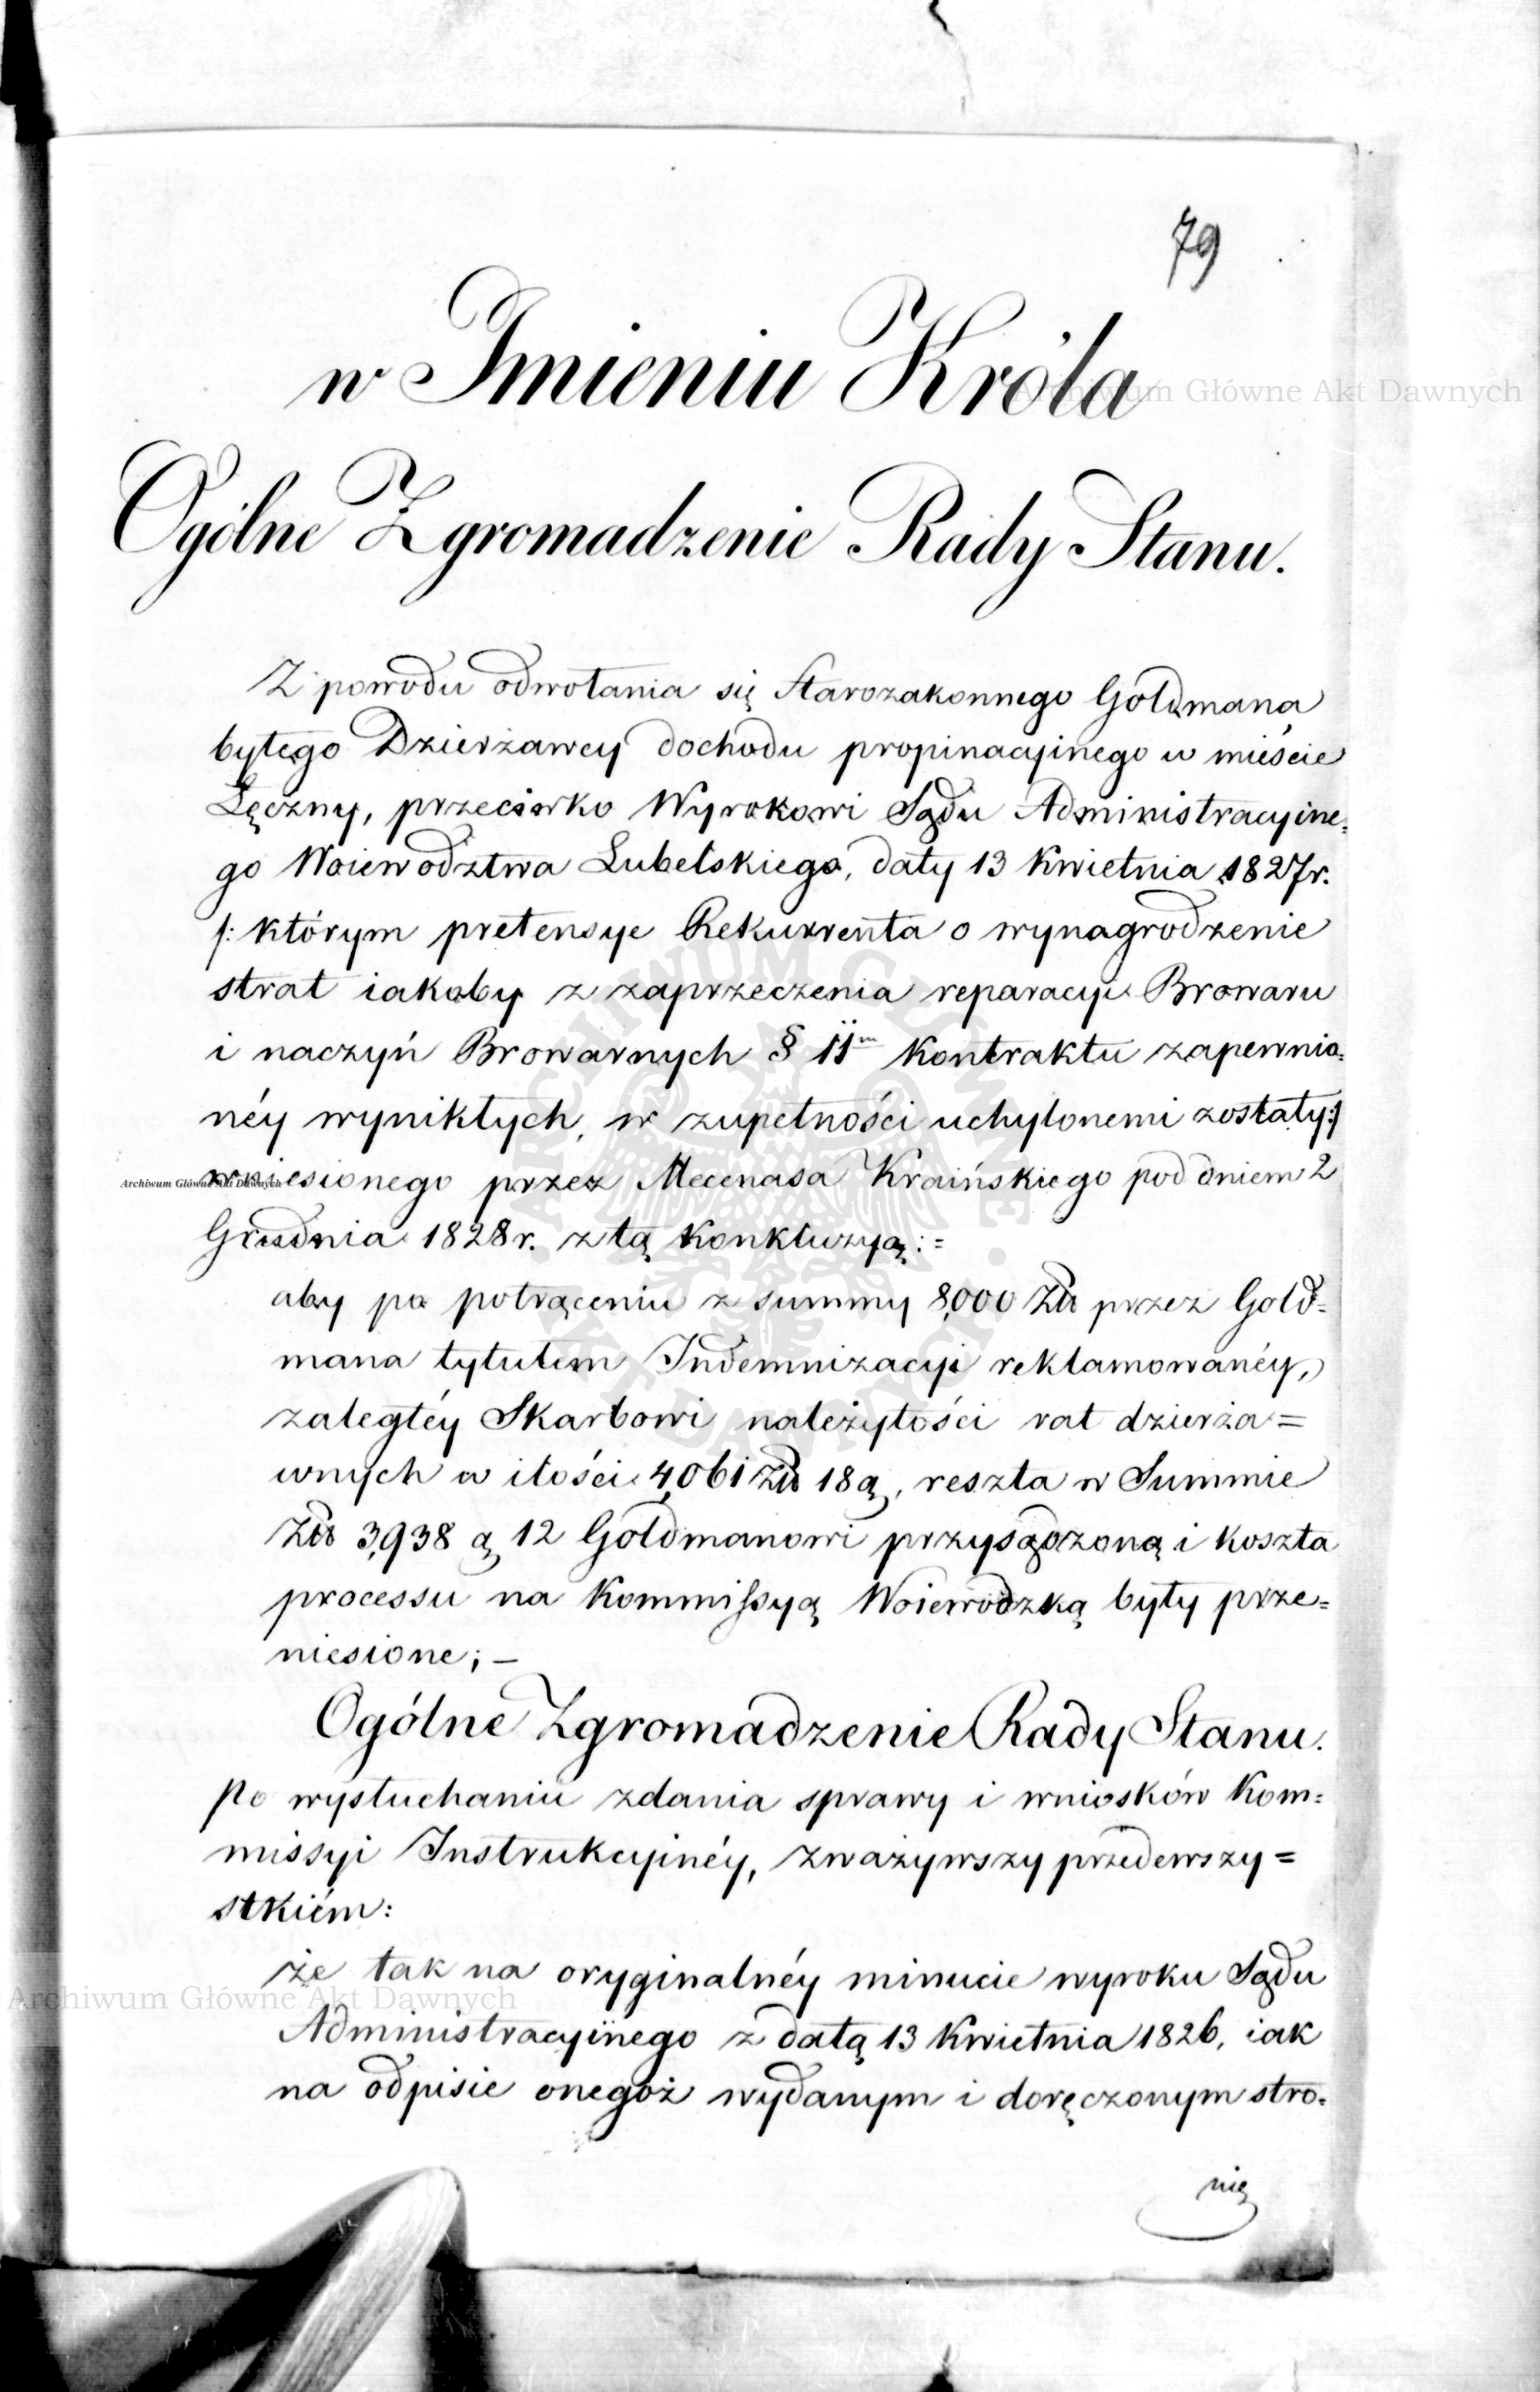 79
w Imieniu Króla
Archiwum Główne Akt Dawnych
Ogólne Zgromadzenie Rady Stanu.
Z powodu odwołania się Starozakonnego Goldmana
byłego Dzierżawcy dochodu propinacyinego w mieście
Łęczny, przeciwko Wyrokowi Sądu Administracyine=
go Woiewództwa Lubelskiego, daty 13 Kwietnia 1827r.
/: którym pretensye Rekurrenta o wynagrodzenie
strat iakoby z zaprzeczenia reparacyi Browaru
i naczyń Browarnych § 11m Kontraktu zapewnio=
néy wynikłych, w zupełności uchylonemi zostały:/
wniesionego przez Mecenasa Kraińskiego pod dniem 2
Archiwum Główne Akt Dawnych
Grudnia 1828r. z tą Konkluzyą:=
aby po potrąceniu z summy 8,000 Złt przez Gold=
mana tytułem Indemnizacyi reklamowanéy,
zaległéy Skarbowi należytości rat dzierża=
wnych w ilości 4,061 Złt 18 g, reszta w Summie
Złt 3,938 g 12 Goldmanowi przysądzoną i koszta
processu na Kommissyą Woiewodzką były prze=
niesione; –
Ogólne Zgromadzenie Rady Stanu.
Po wysłuchaniu zdania sprawy i wniosków Kom=
missyi Instrukcyinéy, zważywszy przedewszy=
stkiém:
że tak na oryginalnéy minucie wyroku Sądu
Archiwum Główne Akt Dawnych
Administracyinego z datą 13 Kwietnia 1826, iak
na odpisie onegoż wydanym i doręczonym stro=
nie
ARCHIWUM GŁÓWNE AKT DAWNYCH